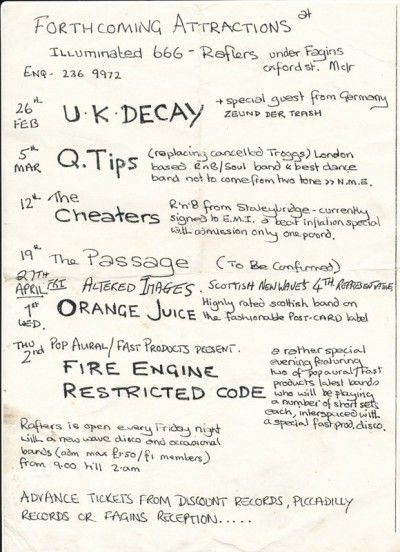 FORTHCOMING ATTRACTIONS at
ILLUMINATED 666 - Rafters under Fagins
Oxford st. Mc/r
ENQ- 236 9972
26th FEB
U·K·DECAY
+ special guest from Germany
ZEUND DER TRASH
5th MAR
Q.Tips
(replacing cancelled Troggs) London
based RnB/Soul band & best dance
band not to come from two tone >> N.M.E.
12th
The Cheaters
R'n'B from Stalybridge - currently
signed to E.M.I. a beat inflation special
with admission only one pound.
19th The Passage (To Be Confirmed)
27TH APRIL FRI ALTERED IMAGES. SCOTTISH NEW WAVES 4TH REPRESENTATIVE
1st WED.
ORANGE JUICE
Highly rated scottish band on
the fashionable POST-CARD label
THU 2nd
POP AURAL/FAST PRODUCTS PRESENT.
FIRE ENGINE
RESTRICTED CODE
a rather special
evening featuring
two of pop aural/fast
products latest bands
who will be playing
a number of short sets
each, interspaced with
a special fast prod. disco.
Rafters is open every Friday night
with a new wave disco and occasional
bands (adm max £1.50/£1 members)
from 9.00 till 2.am
ADVANCE TICKETS FROM DISCOUNT RECORDS, PICCADILLY
RECORDS OR FAGINS RECEPTION.....